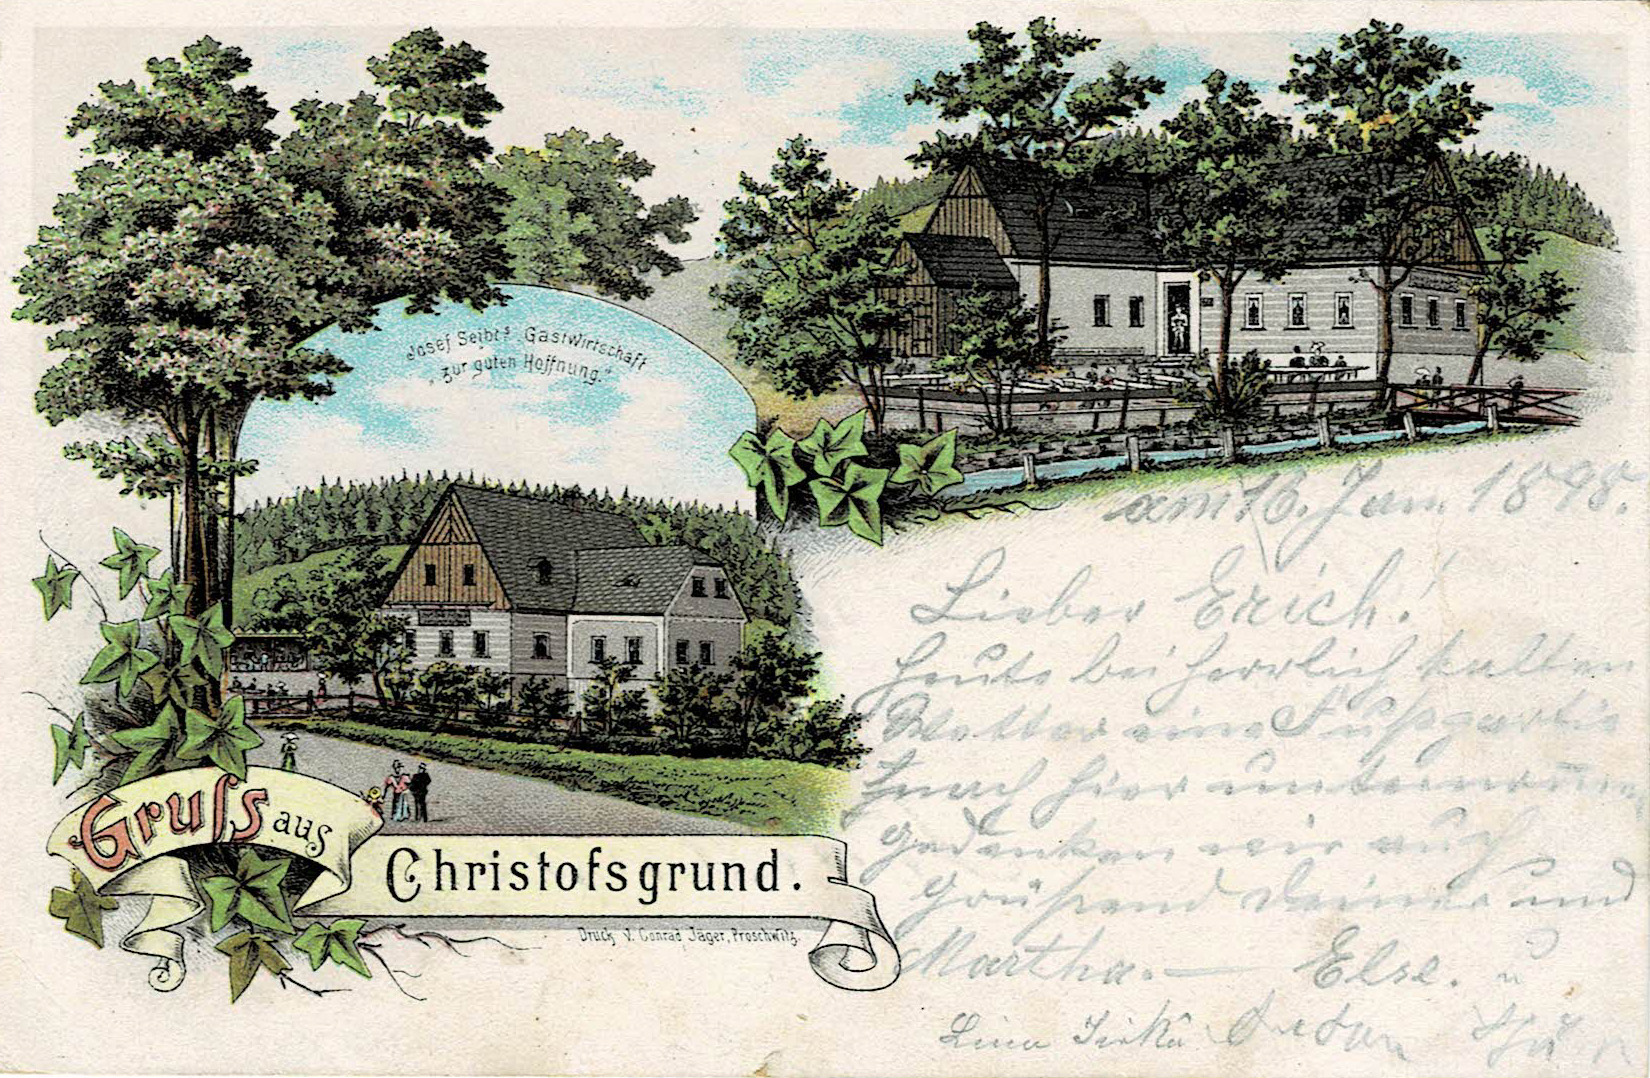 Josef Seibt's Gastwirtschaft
„zur guten Hoffnung."
Gruss aus
Christofsgrund.
Druck v. Conrad Jäger, Proschwitz.
am 16. Jan. 1898.
Lieber Erich!
Heute bei herrlich kalten
Wetter eine Fußpartie
nach hier
gedenken wir auch
grüßend Deiner und
Martha. — Else. u
Lina